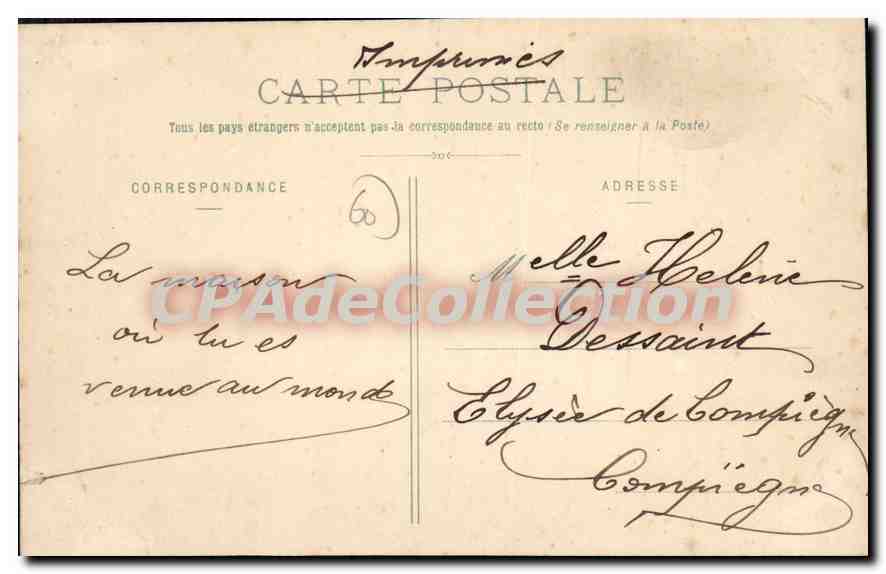 Imprimés
CARTE POSTALE
Tous les pays étrangers n'acceptent pas la correspondance au recto (Se renseigner à la Poste)
CORRESPONDANCE
60
ADRESSE
La maison
où tu es
venue au monde
Melle Helène
Dessaint
Elysée de Compiègne
Compiègne
CPAdeCollection